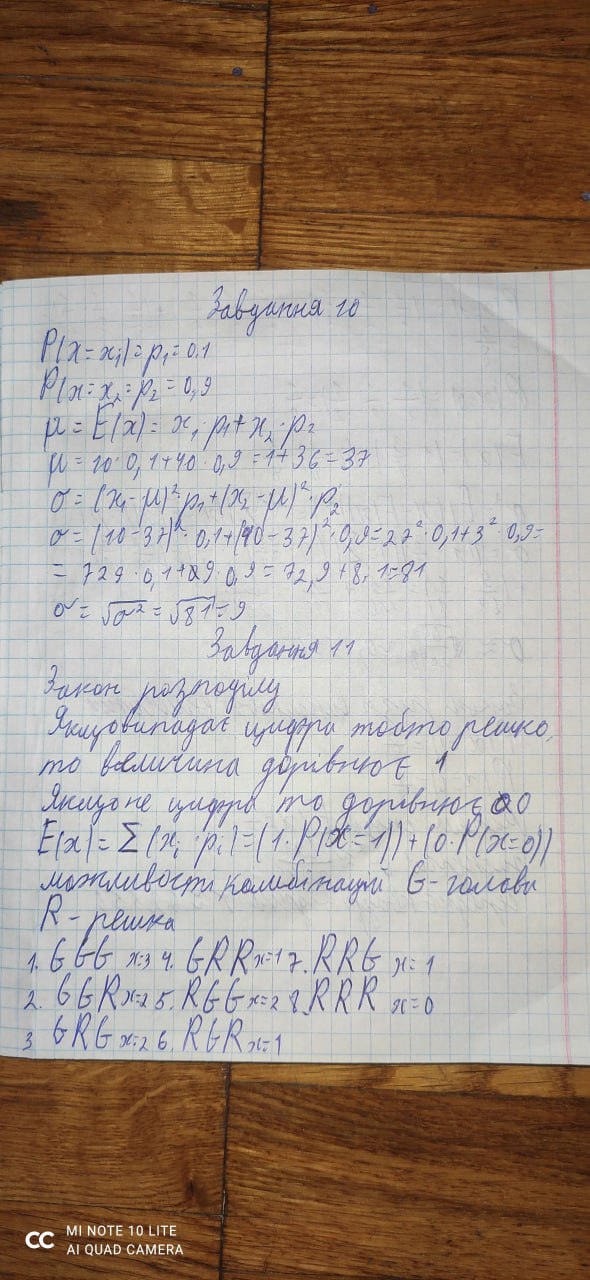 Завдання 10
P(x=x₁)=p₁=0,1
P(x=x₂=p₂=0,9
μ=E(x)=x₁·p₁+x₂·p₂
μ=10·0,1+40·0,9=1+36=37
σ=(x₁-μ)²·p₁+(x₂-μ)²·p₂
σ=(10-37)²·0,1+(40-37)²·0,9=27²·0,1+3²·0,9=
=729·0,1+9·0,9=72,9+8,1=81
σ=√σ²=√81=9
Завдання 11
Закон розподілу
Якщо випадає цифра тобто решко,
то величина дорівнює 1
Якщо не цифра то дорівнює 0
E(x)=Σ(xᵢ·pᵢ)=(1·P(x=1))+(0·P(x=0))
можливості комбінацій G-голова
R-решка
1. GGG x=3 4. GRR x=1 7. RRG x=1
2. GGR x=2 5. RGG x=2 8. RRR x=0
3 GRG x=2 6. RGR x=1
MI NOTE 10 LITE
AI QUAD CAMERA